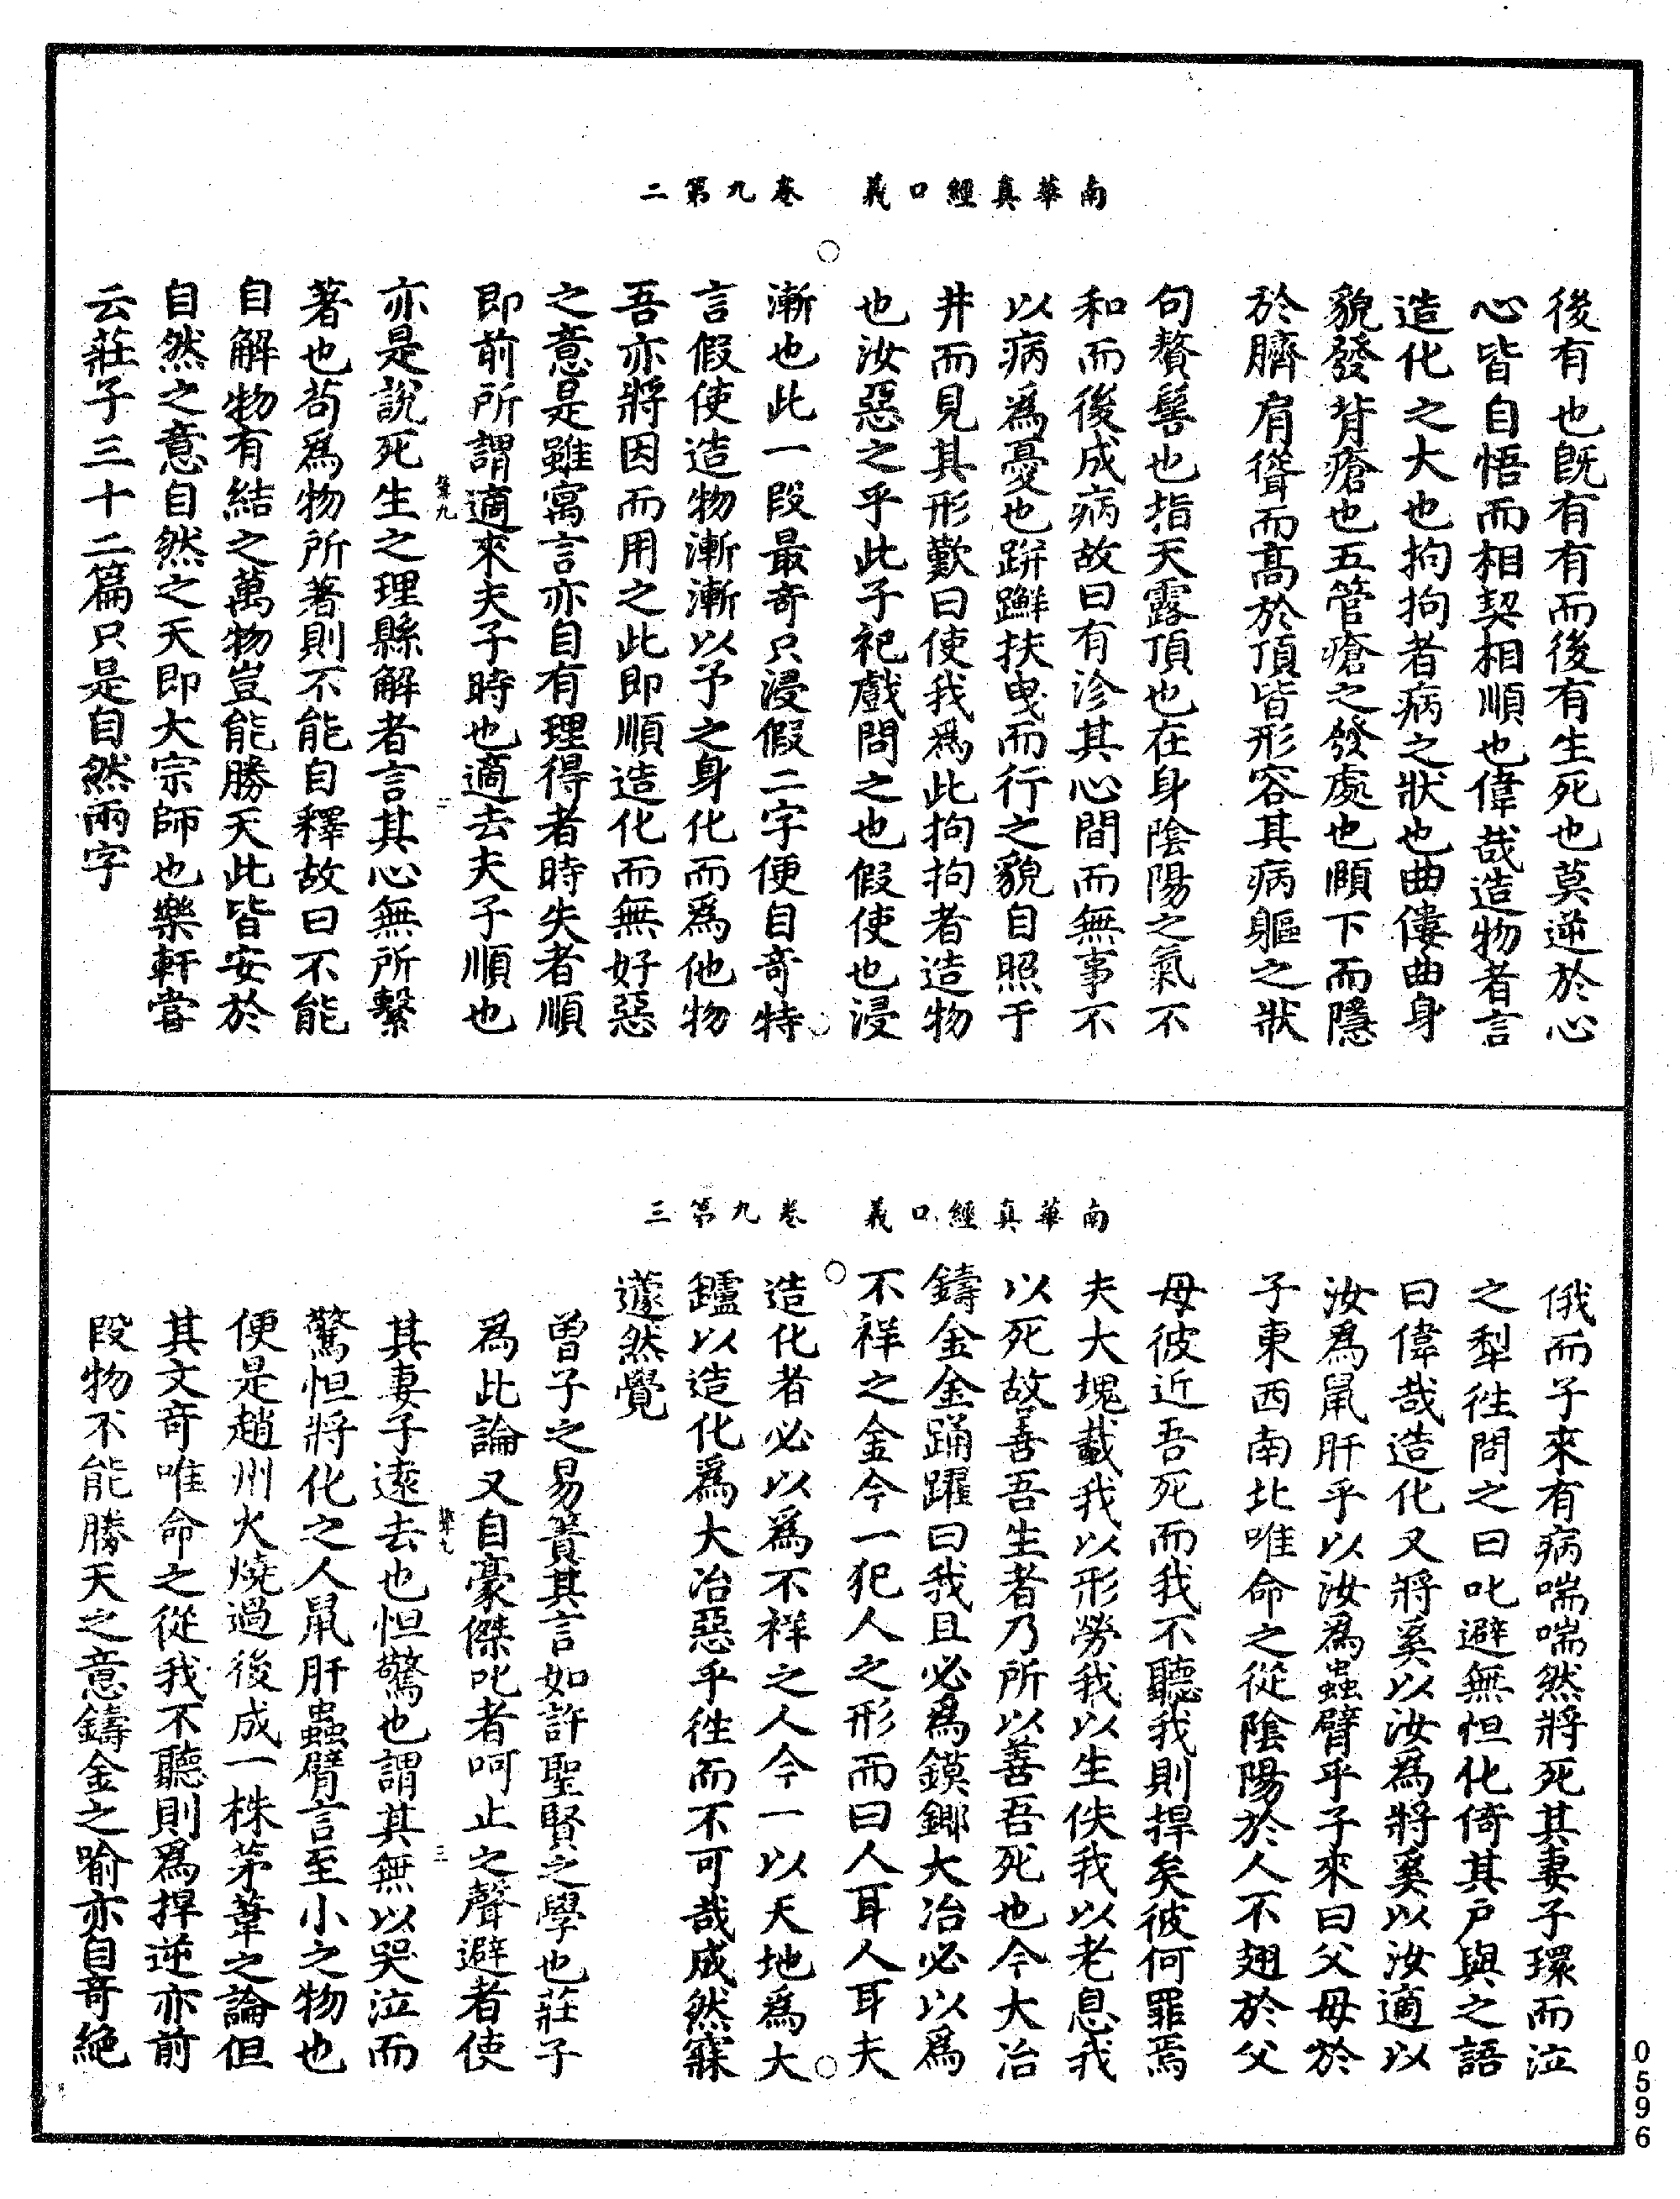 南華真經口義 卷九第二
後有也旣有有而後有生死也莫逆於心
心皆自悟而相契相順也偉哉造物者言
造化之大也拘拘者病之狀也曲僂曲身
貌發背瘡也五管瘡之發處也頥下而隱
於臍肩聳而髙於頂皆形容其病軀之狀
句贅髻也指天露頂也在身陰陽之氣不
和而後成病故曰有沴其心間而無事不
以病爲憂也跰𨇤扶曳而行之貌自照于
井而見其形歎曰使我爲此拘拘者造物
也汝惡之乎此子祀戲問之也假使也浸
漸也此一段最奇只浸假二字便自奇特
言假使造物漸漸以予之身化而爲他物
吾亦將因而用之此即順造化而無好惡
之意是雖寓言亦自有理得者時失者順
即前所謂適來夫子時也適去夫子順也
亦是說死生之理縣解者言其心無所繫
著也苟爲物所著則不能自釋故曰不能
自解物有結之萬物豈能勝天此皆安於
自然之意自然之天即大宗師也樂軒嘗
云莊子三十二篇只是自然兩字
南華真經口義 卷九第三
俄而子來有病喘喘然將死其妻子環而泣
之犁徃問之曰叱避無怛化倚其戶與之語
曰偉哉造化又將奚以汝爲將奚以汝適以
汝爲鼠肝乎以汝爲蟲臂乎子來曰父母於
子東西南北唯命之從陰陽於人不翅於父
母彼近吾死而我不聽我則捍矣彼何罪焉
夫大塊載我以形勞我以生佚我以老息我
以死故善吾生者乃所以善吾死也今大冶
鑄金金踊躍曰我且必爲鏌鋣大冶必以爲
不祥之金今一犯人之形而曰人耳人耳夫
造化者必以爲不祥之人今一以天地爲大
鑪以造化爲大冶惡乎徃而不可哉成然寐
蘧然覺
曾子之易簀其言如許聖賢之學也莊子
爲此論又自豪傑叱者呵止之聲避者使
其妻子遠去也怛驚也謂其無以哭泣而
驚怛將化之人鼠肝蟲臂言至小之物也
便是趙州火燒過後成一株茅葦之論但
其文奇唯命之從我不聽則爲捍逆亦前
段物不能勝天之意鑄金之喻亦自奇絶
0596